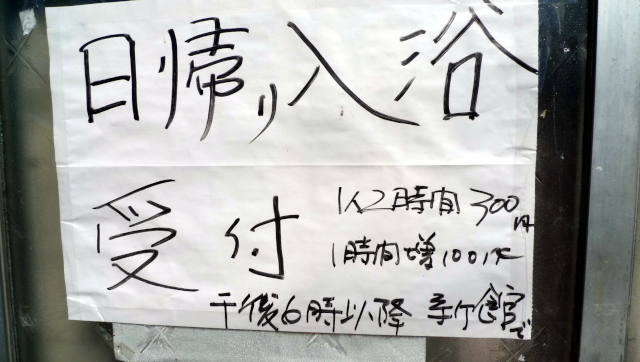 日帰り入浴
受付
1人2時間 300円
1時間増100円
午後6時以降 新館で